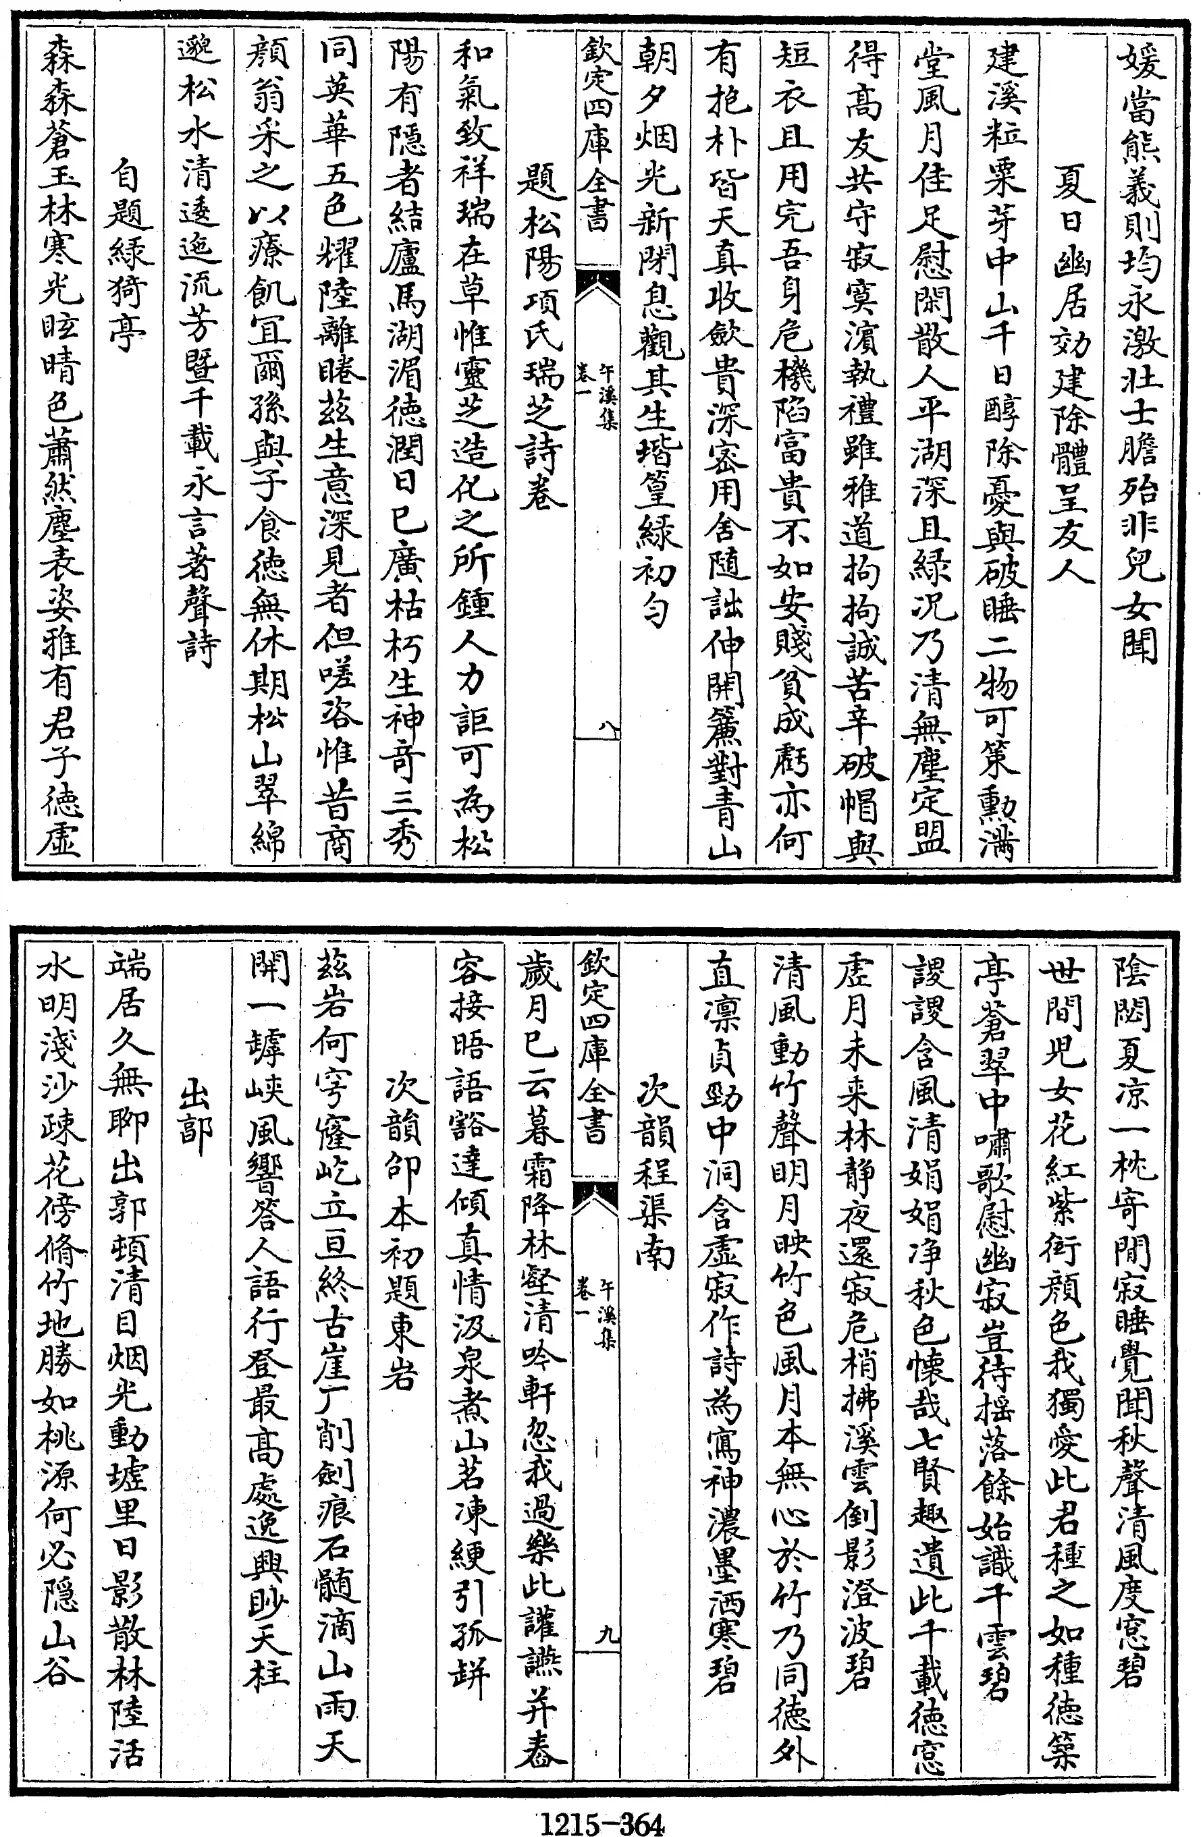 媛當熊義則均永激壯士膽殆非兒女聞
夏日幽居効建除體呈友人
建溪粒粟芽中山千日醇除憂與破睡二物可策勳滿
堂風月佳足慰閑散人平湖深且緑况乃清無塵定盟
得髙友共守寂寞濱執禮雖雅道拘拘誠苦辛破帽與
短衣且用完吾身危機陷富貴不如安賤貧成虧亦何
有抱朴皆天真收歛貴深宻用舍随詘伸開簾對青山
朝夕烟光新閉息觀其生堦篁緑初勻
欽定四庫全書
午溪集
卷一
八
題松陽項氏瑞芝詩卷
和氣致祥瑞在草惟靈芝造化之所鍾人力詎可為松
陽有隱者結廬馬湖湄徳潤日已廣枯朽生神竒三秀
同英華五色耀陸離睠茲生意深見者但嗟咨惟昔商
顔翁采之以療飢宜爾孫與子食徳無休期松山翠綿
邈松水清逶迤流芳曁千載永言著聲詩
自題緑猗亭
森森蒼玉林寒光眩晴色蕭然塵表姿雅有君子徳虚
陰閟夏凉一枕寄閒寂睡覺聞秋聲清風度窓碧
世間兒女花紅紫衒顔色我獨愛此君種之如種徳築
亭蒼翠中嘯歌慰幽寂豈待揺落餘始識千雲碧
謖謖含風清娟娟净秋色懐哉七賢趣遺此千載徳窓
虚月未来林静夜還寂危梢拂溪雲倒影澄波碧
清風動竹聲明月映竹色風月本無心於竹乃同徳外
直凛貞勁中洞含虚寂作詩為寫神濃墨洒寒碧
次韻程渠南
欽定四庫全書
午溪集
卷一
九
歳月已云暮霜降林壑清吟軒忽我過樂此讙讌并春
容接晤語豁達傾真情汲泉煮山茗凍綆引孤缾
次韻郤本初題東岩
茲岩何穹窿屹立亘終古崖广削劍痕石髄滴山雨天
開一罅峽風響答人語行登最髙處逸興眇天柱
出郭
端居久無聊出郭頓清目烟光動墟里日影散林陸活
水明淺沙疎花傍脩竹地勝如桃源何必隠山谷
1215-364